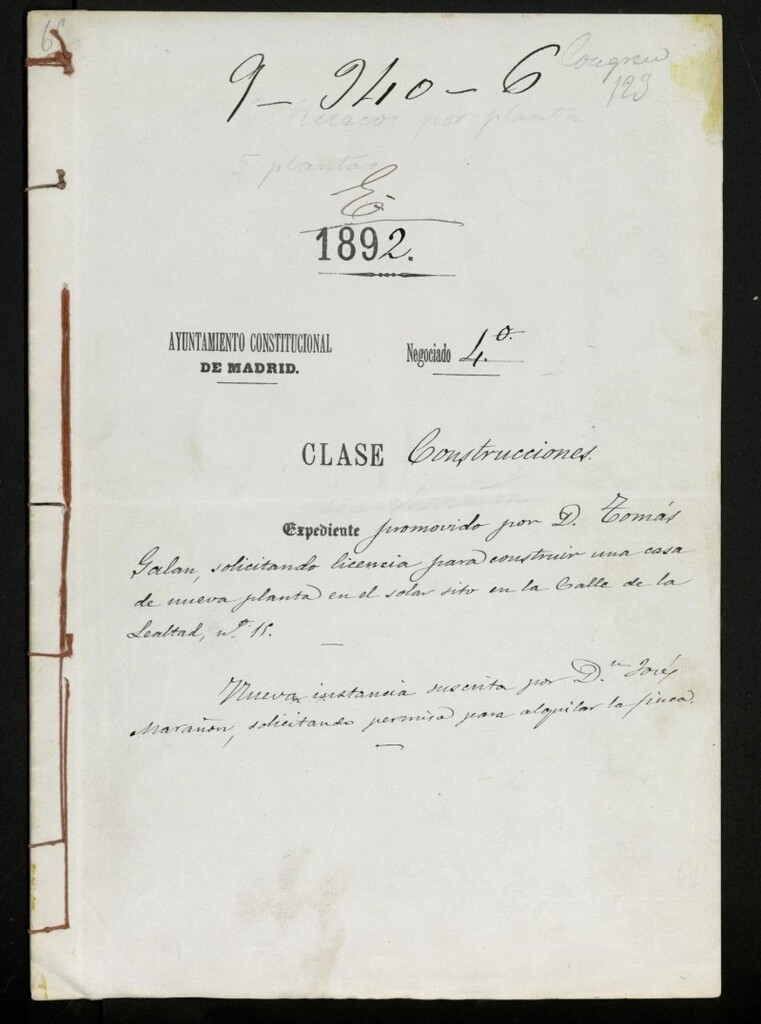 6
9 – 940 – 6
Congreso
123
Huecos por planta
5 plantas
E
1892.
AYUNTAMIENTO CONSTITUCIONAL
DE MADRID.
Negociado 4.º
CLASE Construcciones.
Expediente promovido por D. Tomás
Galan, solicitando licencia para construir una casa
de nueva planta en el solar sito en la Calle de la
Lealtad, nº 15.
Nueva instancia suscrita por D.n José
Marañon, solicitando permiso para alquilar la finca.